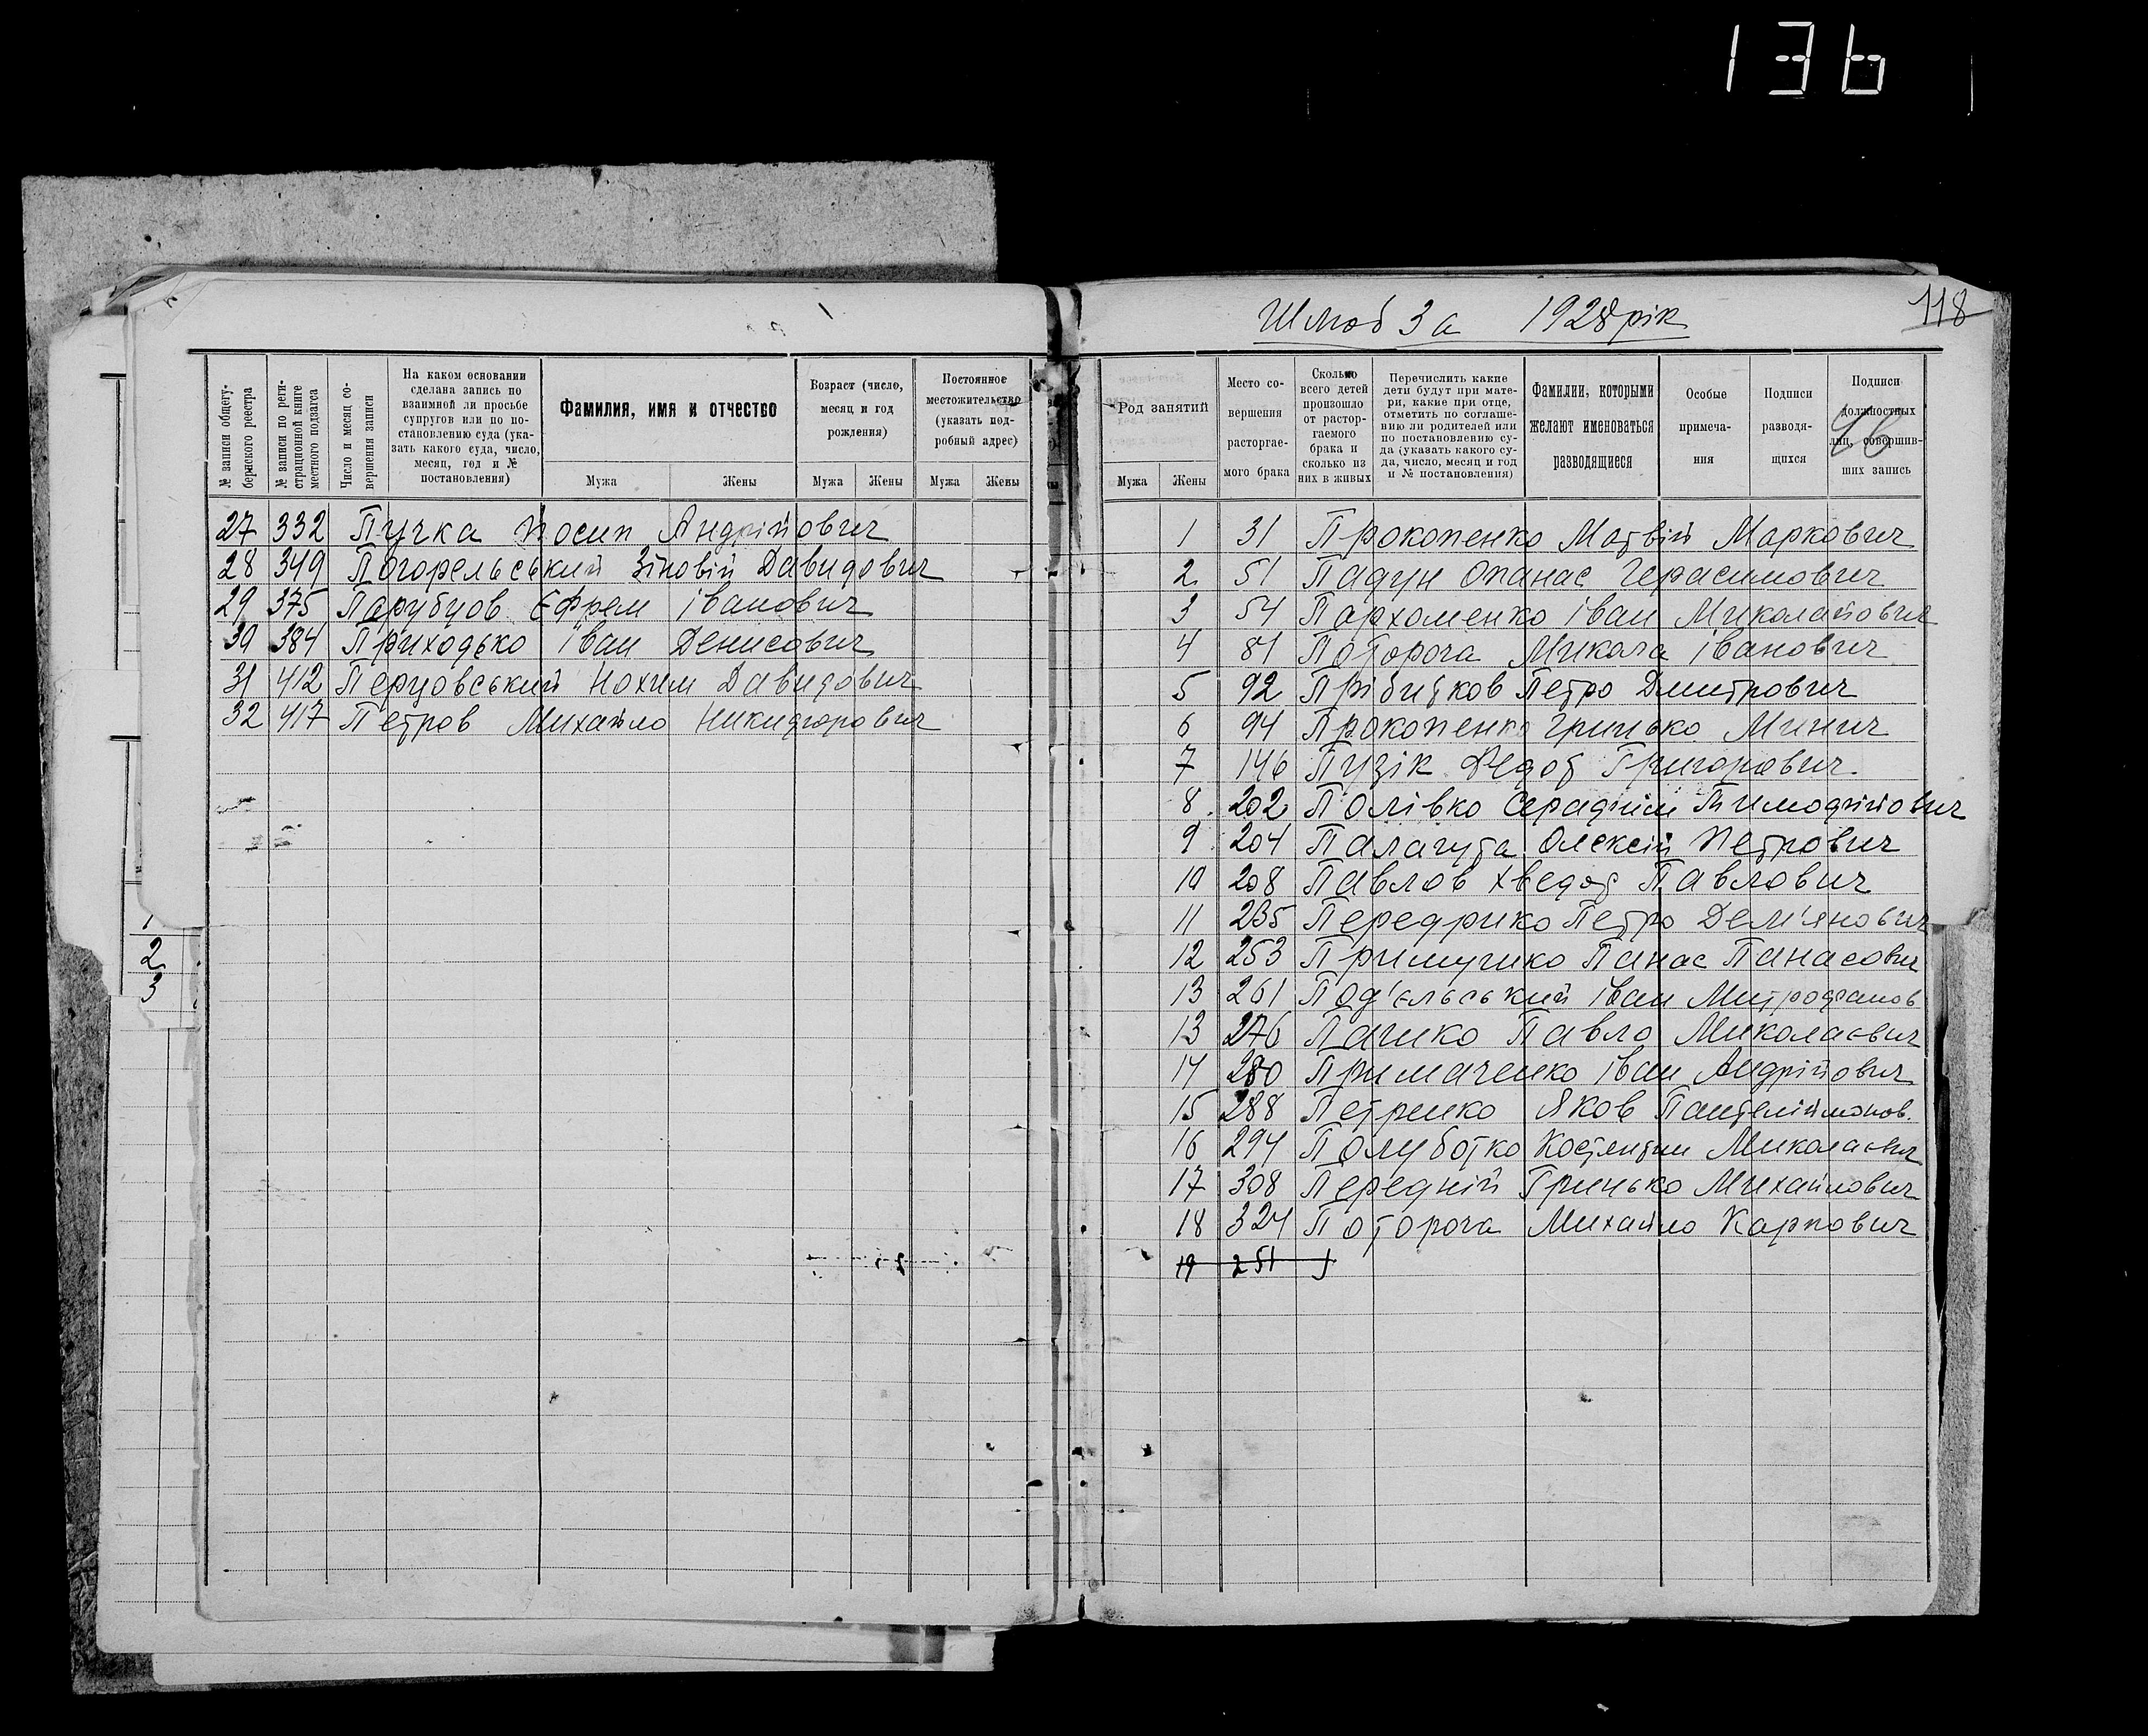 136
№ записи общегу-
бернского реестра
№ записи по реги-
страционной книге
местного подзагса
Число и месяц со-
вершения записи
На каком основании
сделана запись по
взаимной ли просьбе
супругов или по по-
становлению суда (ука-
зать какого суда, число,
месяц, год и №
постановления)
Фамилия, имя и отчество
Мужа Жены
Возраст (число,
месяц и год
рождения)
Мужа Жены
Постоянное
местожительство
(указать под-
робный адрес)
Мужа Жены
27 332 Пучка Йосип Андрійович
28 349 Погорельський Зіновій Давидович
29 375 Парубцов Єфрем Іванович
30 384 Приходько Іван Денисович
31 412 Перцовський Нохим Давидович
32 417 Петров Михайло Никифорович
2
3
Шлюб За 1928 рік
118
Род занятий
Мужа Жены
Место со-
вершения
расторгае-
мого брака
Сколько
всего детей
произошло
от растор-
гаемого
брака и
сколько из
них в живых
Перечислить какие
дети будут при мате-
ри, какие при отце,
отметить по соглаше-
нию ли родителей или
по постановлению су-
да (указать какого су-
да, число, месяц и год
и № постановления)
Фамилии, которыми
желают именоваться
разводящиеся
Особые
примеча-
ния
Подписи
разводя-
щихся
Подписи
должностных
лиц, совершив-
ших запись
1 31 Прокопенко Матвій Маркович
2 51 Падун Опанас Герасимович
3 54 Пархоменко Іван Миколайович
4 81 Потороча Микола Іванович
5 92 Прібитков Петро Дмитрович
6 94 Прокопенко Гринько Минич
7 146 Пузік Федот Григорович
8 202 Полівко Серафим Тимофійович
9 204 Палагута Олексій Петрович
10 208 Павлов Хведот Павлович
11 235 Передрико Петро Дем'янович
12 253 Примушко Панас Панасович
13 261 Под'єльський Іван Митрофанов
13 276 Пашко Павло Миколаєвич
14 280 Примаченко Іван Андрійович
15 288 Петренко Яков Пантеліймонов.
16 294 Полуботко Костянтин Миколаєвич
17 308 Передній Гринько Михайлович
18 324 Потороча Михайло Карпович
19 251